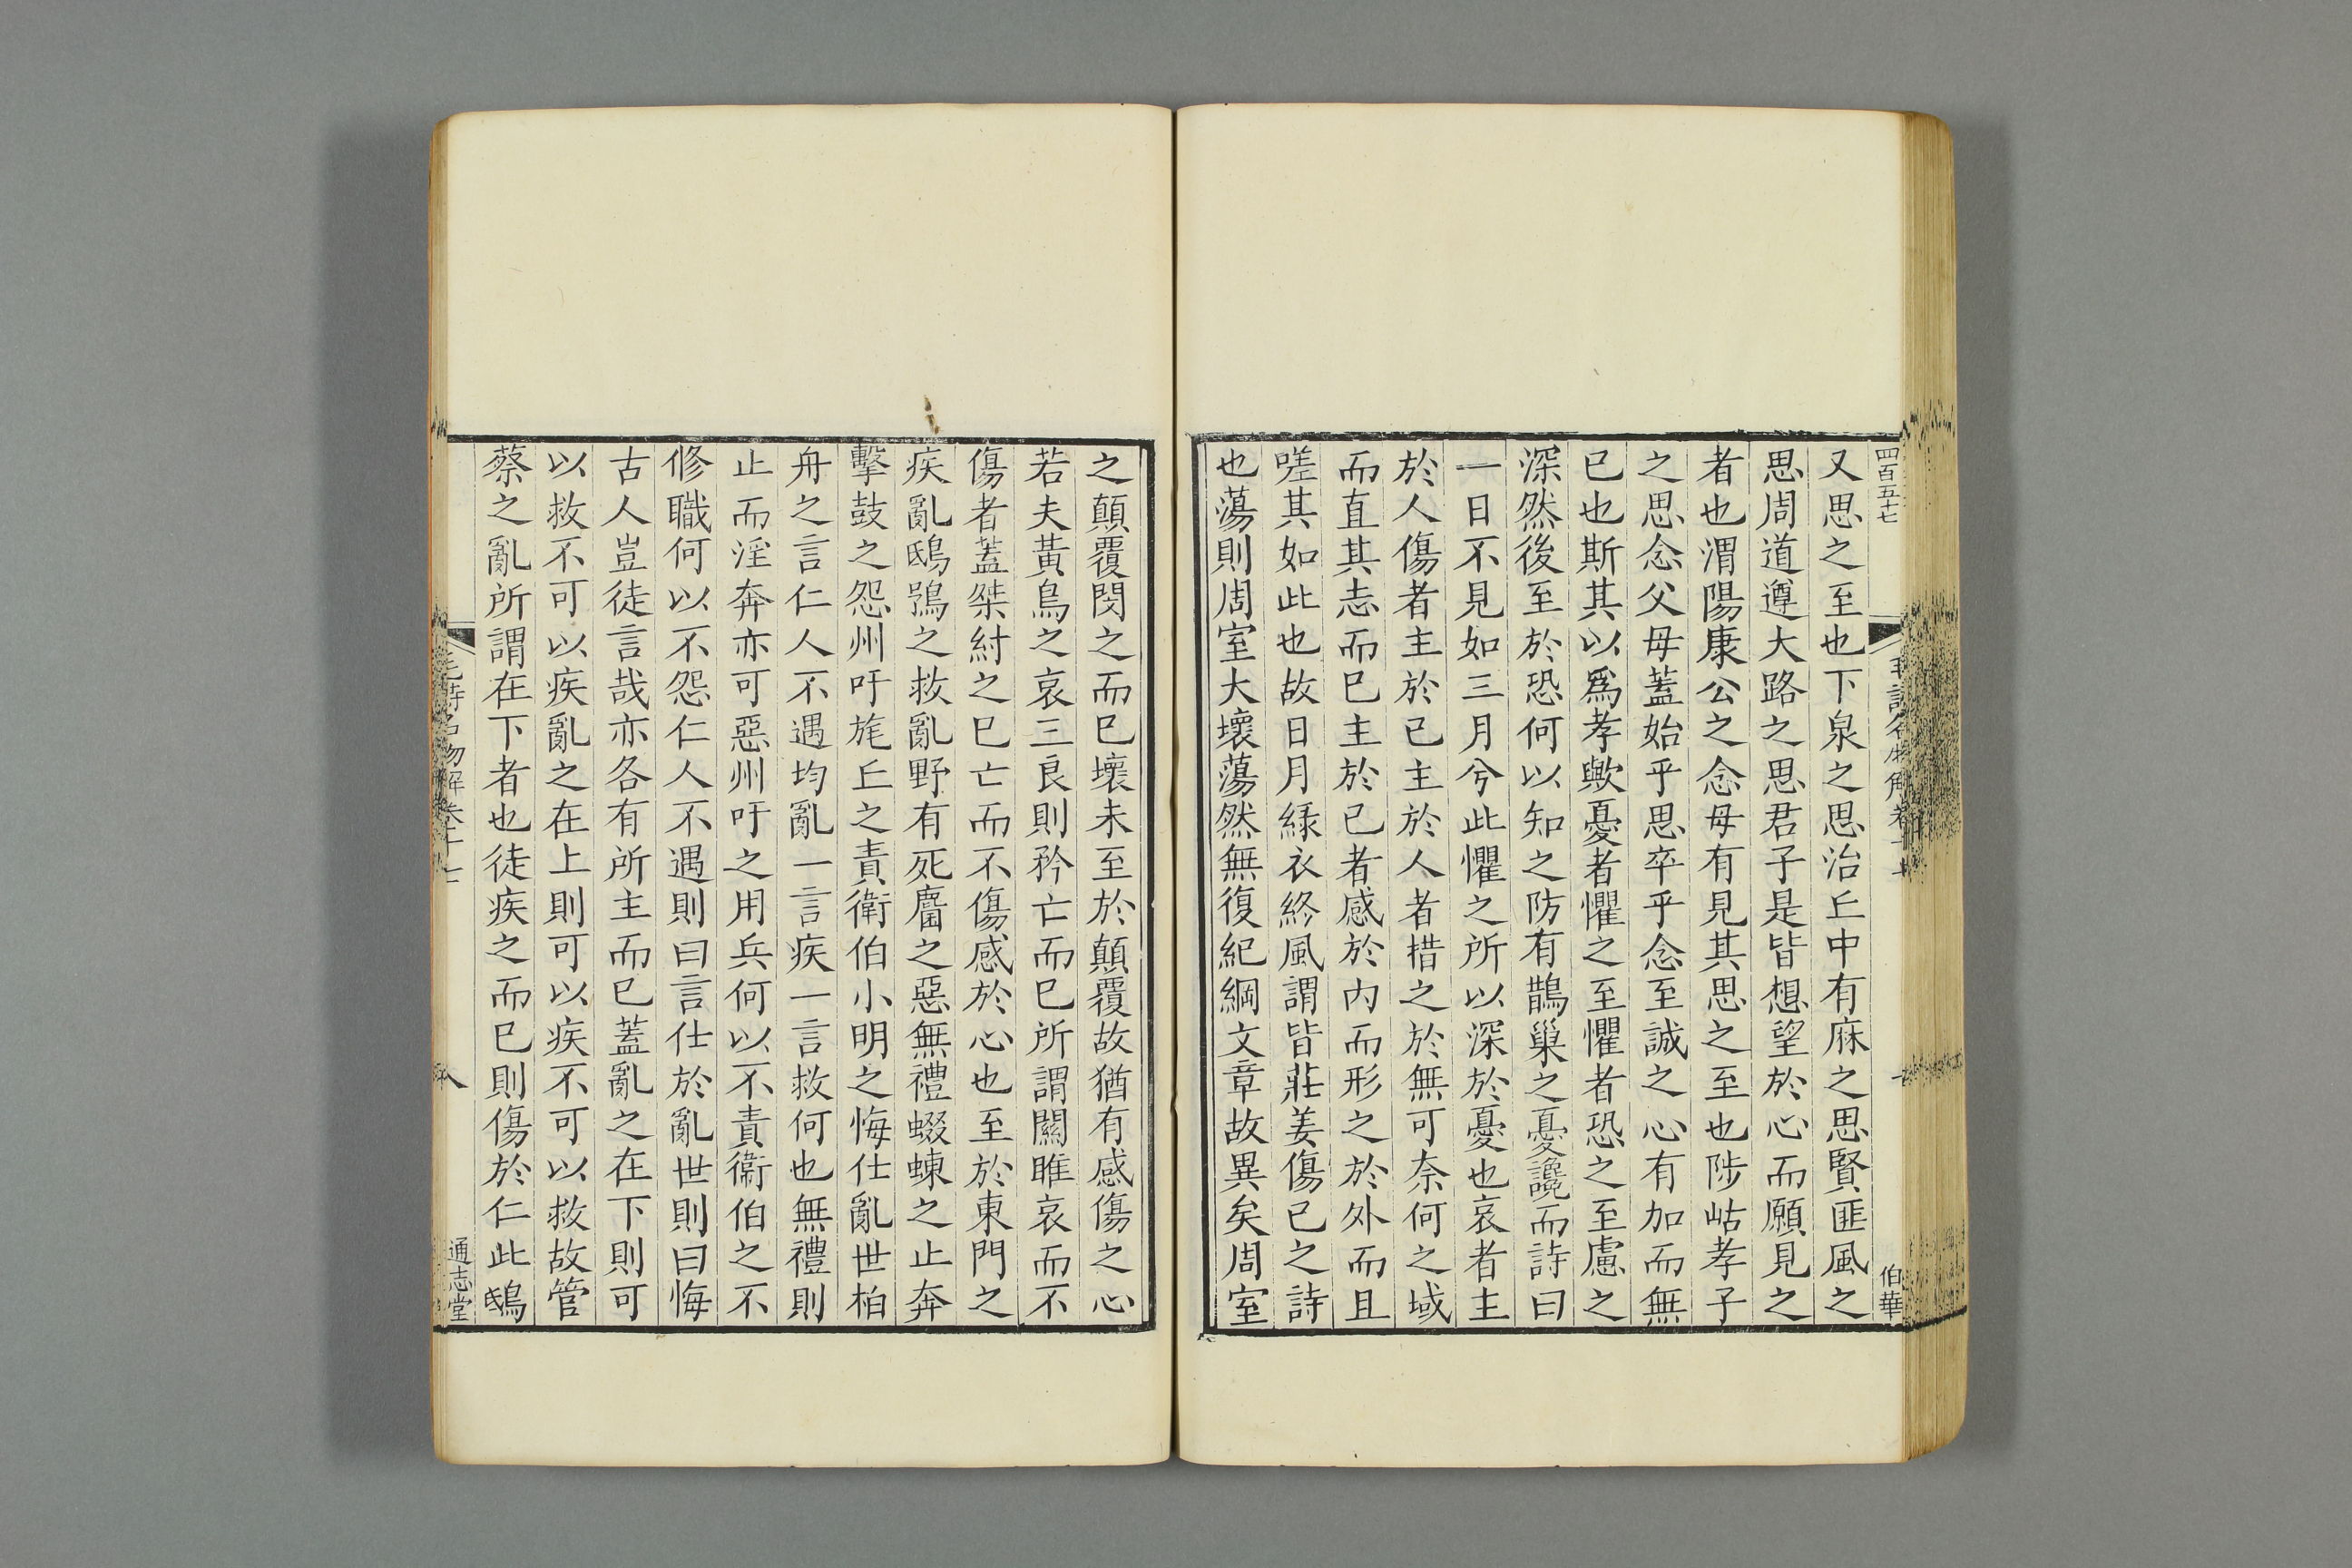 四百五十七
毛詩名物解卷十七
伯華
又思之至也下泉之思治丘中有麻之思賢匪風之
思周道遵大路之思君子是皆想望於心而願見之
者也渭陽康公之念母有見其思之至也陟岵孝子
之思念父母蓋始乎思卒乎念至誠之心有加而無
已也斯其以為孝歟憂者懼之至懼者恐之至慮之
深然後至於恐何以知之防有鵲巢之憂讒而詩曰
一日不見如三月兮此懼之所以深於憂也哀者主
於人傷者主於己主於人者措之於無可奈何之域
而直其志而已主於己者感於內而形之於外而且
嗟其如此也故日月綠衣終風謂皆莊姜傷己之詩
也蕩則周室大壞蕩然無復紀綱文章故異矣周室
之顛覆閔之而已壞未至於顛覆故猶有感傷之心
若夫黃鳥之哀三良則矜亡而已所謂關雎哀而不
傷者蓋桀紂之已亡而不傷感於心也至於東門之
疾亂鴟鴞之救亂野有死麕之惡無禮蝃蝀之止奔
擊鼓之怨州吁旄丘之責衛伯小明之悔仕亂世柏
舟之言仁人不遇均亂一言疾一言救何也無禮則
止而淫奔亦可惡州吁之用兵何以不責衛伯之不
修職何以不怨仁人不遇則曰言仕於亂世則曰悔
古人豈徒言哉亦各有所主而已蓋亂之在下則可
以救不可以疾亂之在上則可以疾不可以救故管
蔡之亂所謂在下者也徒疾之而已則傷於仁此鴟
毛詩名物解卷十七
八
通志堂